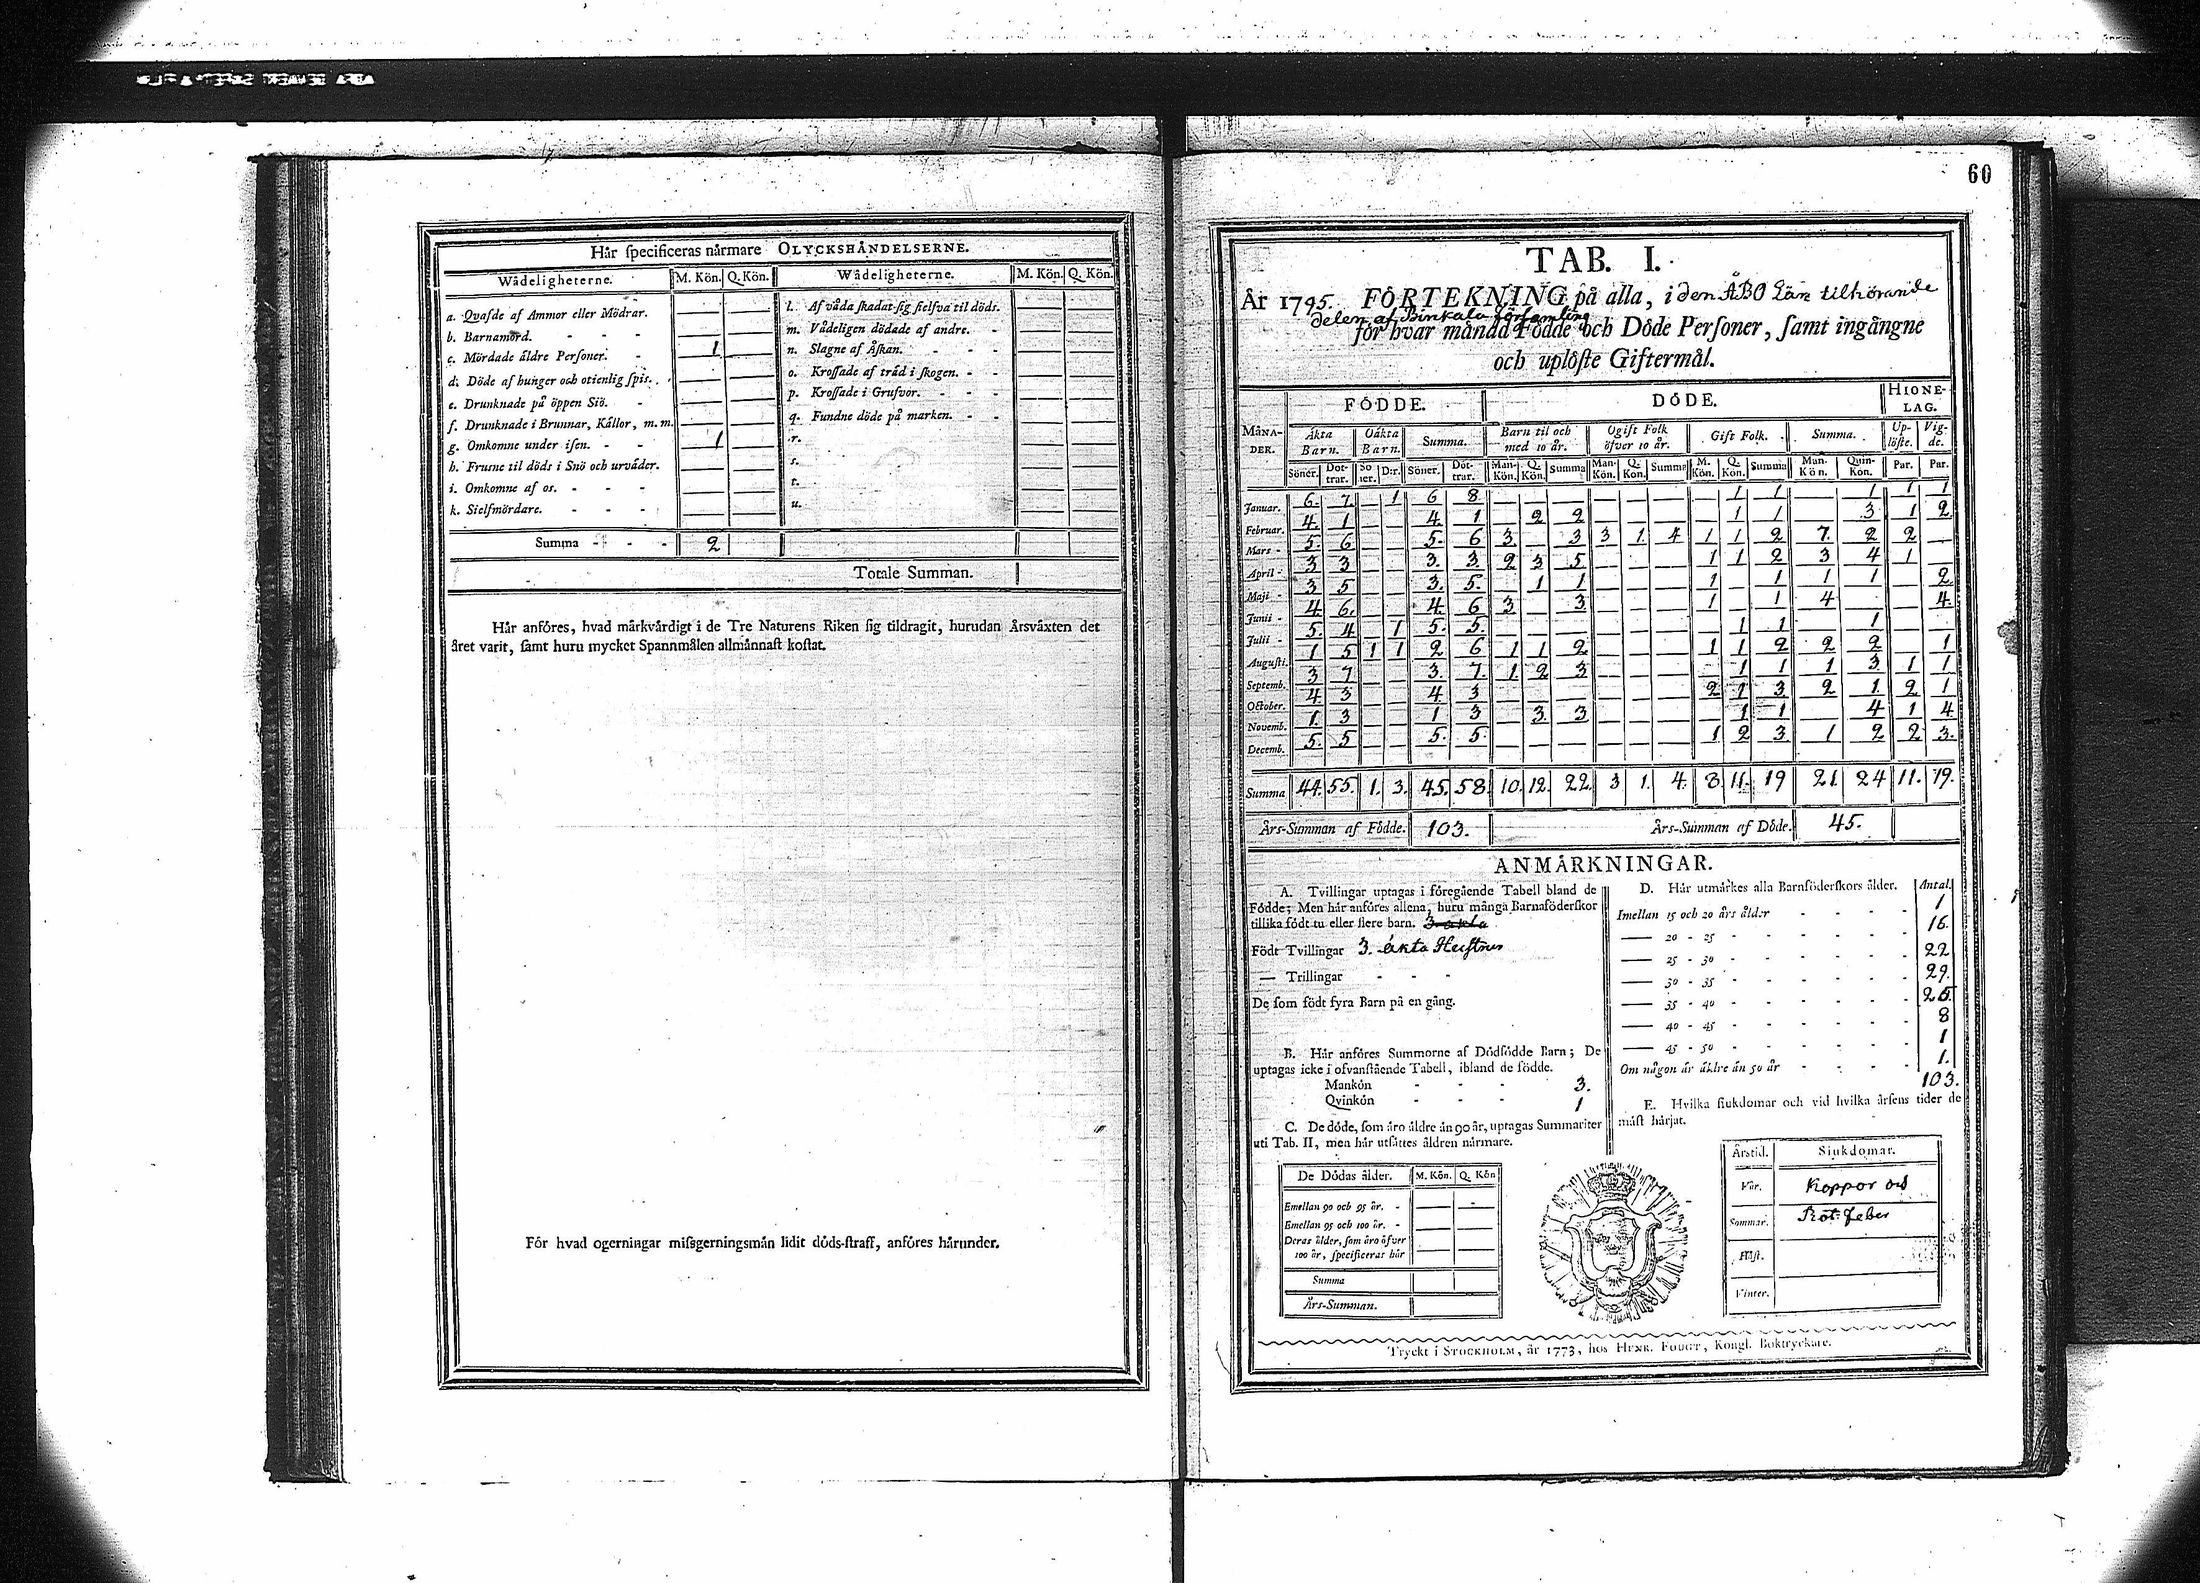 60
Hår specificeras nårmare OLYCKSHÅNDELSERNE.
Wådeligheterne. M. Kön. Q. Kön. Wådeligheterne. M. Kön. Q. Kön.
a. Qvafde af Ammor eller Mödrar. — — l. Af våda skadat sig sielfva til döds. — —
b. Barnamord. - - - — — m. Vådeligen dödade af andre. - — —
c. Mördade äldre Personer. - 1 — n. Slagne af Åskan. - - - — —
d. Döde af hunger och otienlig spis. — — o. Krossade af träd i skogen. - - — —
e. Drunknade på öppen Siö. - — — p. Krossade i Grufvor. - - - — —
f. Drunknade i Brunnar, Källor, m. m. — — q. Fundne döde på marken. - - — —
g. Omkomne under isen. - - 1 — r. — —
h. Frusne til döds i Snö och urväder. — — s. — —
i. Omkomne af os. - - - — — t. — —
k. Sielfmördare. - - - — — u. — —
Summa - - - 2
Totale Summan.
Hår anföres, hvad mårkvårdigt i de Tre Naturens Riken sig tildragit, hurudan Årsvåxten det
året varit, samt huru mycket Spannmålen allmånnast kostat.
För hvad ogerningar missgerningsmån lidit döds-straff, anföres hårunder.
TAB. I.
År 1795. FÖRTEKNING på alla, i den ÅBO Län tilhörande
delen af Birkala församling
för hvar månad Födde och Döde Personer, samt ingångne
och uplöste Giftermål.
FÖDDE. DÖDE. HIONE-LAG.
MÅNA-DER. Åkta Barn. Oåkta Barn. Summa. Barn til och med 10 år. Ogift Folk öfver 10 år. Gift Folk. Summa. Up-löste. Vig-de.
Söner. Döt-trar. Sö ner. D:r. Söner. Döt-trar. Man-Kön. Q. Kön. Summa Man-Kön. Q. Kön. Summa M. Kön. Q. Kön. Summa Man-Kön. Quin-Kön. Par. Par.
Januar. 6. 7. — 1 6 8 — — — — — — — 1 1 — 1 1 1
Februar. 4. 1 — — 4. 1 — 2 2 — — — — 1 1 — 3 1 2
Mars - 5. 6 — — 5. 6 3. — 3 3 1. 4 1 1 2 7. 2 2 —
April - 3 3 — — 3. 3. 2 3 5 — — — 1 1 2 3 4 1 —
Maji - 3 5 — — 3. 5. — 1 1 — — — 1 — 1 1 1 — 2
Junii - 4 6. — — 4. 6 3 — 3 — — — 1 — 1 4 — — 4.
Julii - 5. 4 — 1 5. 5. — — — — — — — 1 1 — 1 — —
Augusti. 1 5 1 1 2 6 1 1 2 — — — 1 1 2 2 2 — 1
Septemb. 3 7 — — 3. 7. 1. 2 3 — — — — 1 1 1 3 1 1
October. 4. 3 — — 4. 3 — — — — — — 2 1 3 2 1. 2 1
Novemb. 1. 3 — — 1 3 — 3. 3 — — — — 1 1 — 4 1 4
Decemb. 5. 5 — — 5. 5. — — — — — — 1 2 3 1 2 2 3.
Summa 44. 55. 1. 3. 45. 58. 10. 12. 22. 3 1. 4. 8. 11. 19 21. 24 11. 19.
Års-Summan af Födde. 103. Års-Summan af Döde. 45.
ANMÅRKNINGAR.
A. Tvillingar uptagas i föregående Tabell bland de
Födde; Men hår anföres allena, huru många Barnaföderskor
tillika födt tu eller flere barn.
Födt Tvillingar 3. äkta Hustrur
— Trillingar - - -
De som födt fyra Barn på en gång.
B. Hår anföres Summorne af Dödfödde Barn; De
uptagas icke i ofvanstående Tabell, ibland de födde.
Mankön - - - 3.
Qvinkön - - - 1
C. De döde, som åro åldre ån 90 år, uptagas Summariter
uti Tab. II, men hår utsåttes åldren nårmare.
De Dödas ålder. M. Kön. Q. Kön
Emellan 90 och 95 år. - — —
Emellan 95 och 100 år. - — —
Deras ålder, som äro öfver
100 år, specificeras här — —
Summa
Års-Summan.
D. Hår utmårkes alla Barnföderskors ålder. Antal.
Imellan 15 och 20 års ålder - - - - 1
— 20 - 25 - - - - 16.
— 25 - 30 - - - - 22
— 30 - 35 - - - - 29.
— 35 - 40 - - - - 25.
— 40 - 45 - - - - 8
— 45 - 50 - - - - 1
Om någon är äldre än 50 år - - - - 1.
103.
E. Hvilka siukdomar och vid hvilka årsens tider de
måst hårjat.
Årstid. Siukdomar.
Vår. Koppor och
Sommar. Röt-Feber
Höst.
Vinter.
Tryckt i STOCKHOLM, år 1773, hos HENR. FOUGT, Kongl. Boktryckare.